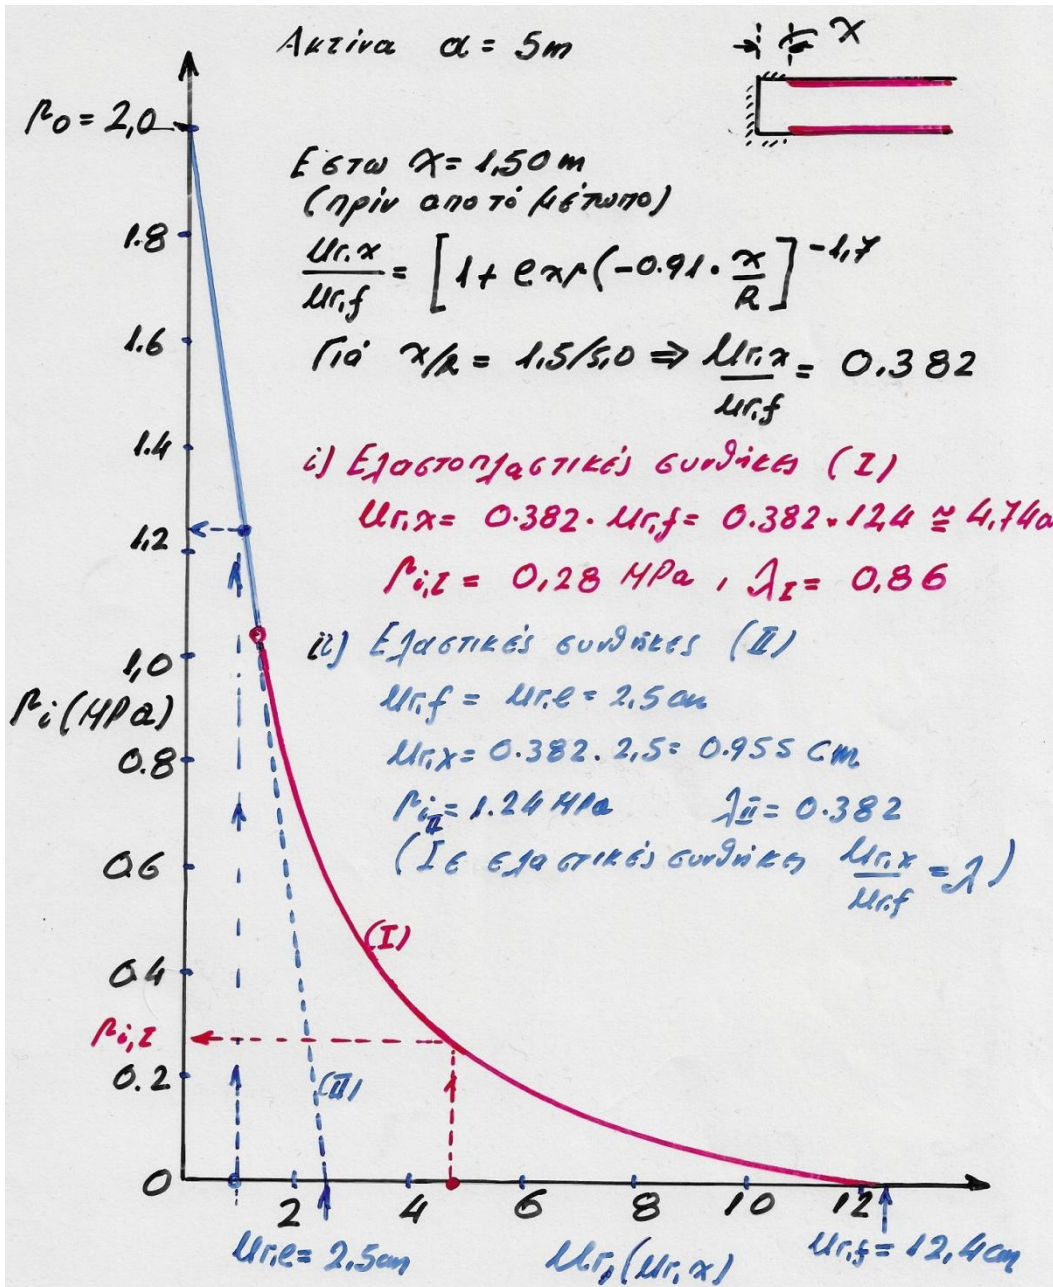 Ακτίνα α = 5m
x
p₀ = 2,0
Εστω x = 1,50 m
(πρίν απο τό μέτωπο)
1.8
ur,x / ur,f = [1 + exp(-0.91 · x/R]^-1,7
1.6
Γιά x/R = 1,5/5,0 ⇒ ur,x / ur,f = 0.382
1.4
i) Ελαστοπλαστικές συνθήκες (I)
ur,x = 0.382 · ur,f = 0.382 · 12,4 ≅ 4,74c
1,2
pi,I = 0,28 MPa , λI = 0,86
ii) Ελαστικές συνθήκες (II)
1,0
ur,f = ur,e = 2,5 cm
pi (MPa)
ur,x = 0.382 . 2,5 = 0.955 cm
0.8
piII = 1.24 MPa λII = 0.382
(Σε ελαστικές συνθήκες ur,x / ur,f = λ)
0.6
(I)
0.4
pi,I
0.2
(II)
0
2 4 6 8 10 12
ur,e = 2,5cm ur, (ur,x) ur,f = 12,4 cm